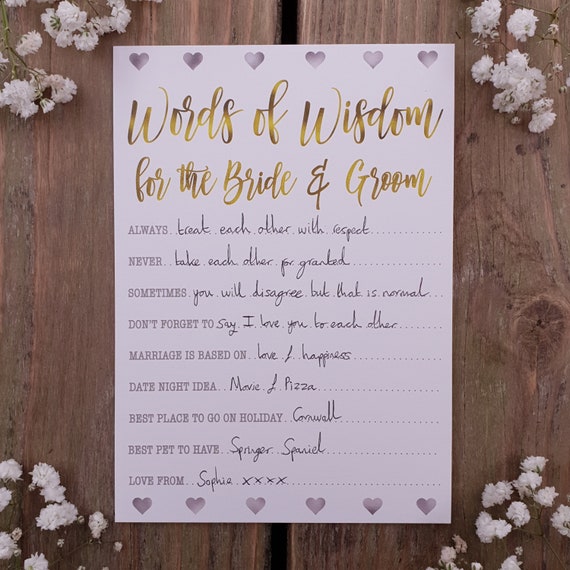 Words of Wisdom
for the Bride & Groom
ALWAYS treat each other with respect
NEVER take each other for granted
SOMETIMES you will disagree but that is normal
DON'T FORGET TO say I love you to each other
MARRIAGE IS BASED ON love & happiness
DATE NIGHT IDEA Movie & Pizza
BEST PLACE TO GO ON HOLIDAY Cornwall
BEST PET TO HAVE Springer Spaniel
LOVE FROM Sophia xxxx